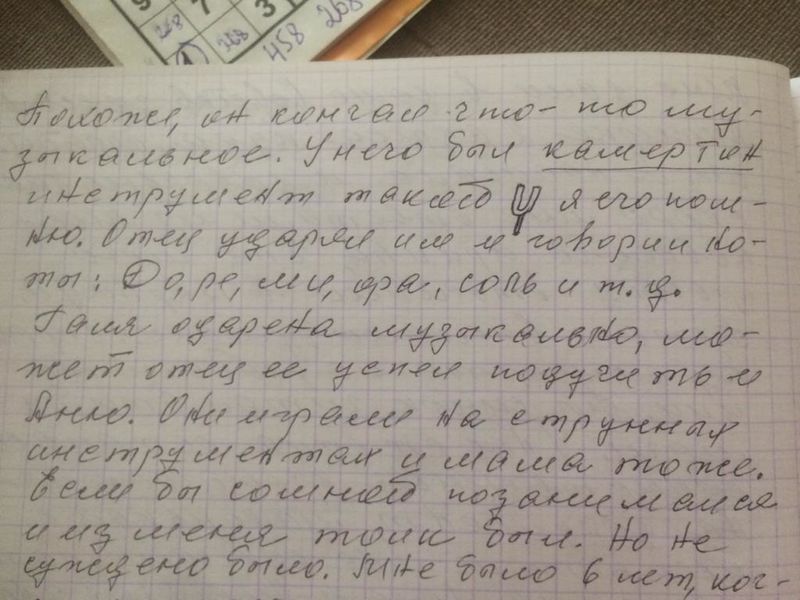 9
7
3
268
268
258
458
Похоже, он кончал что-то му-
зыкальное. У него был камертон
инструмент такой я его пом-
ню. Отец ударял им и говорил но-
ты: До, ре, ми, фа, соль и т.д.
Галя одарена музыкально, мо-
жет отец ее успел подучить и
Аню. Они играли на струнных
инструментах и мама тоже.
Если бы со мной позанимался
и из меня толк был. Но не
суждено было. Мне было 6 лет, ког-